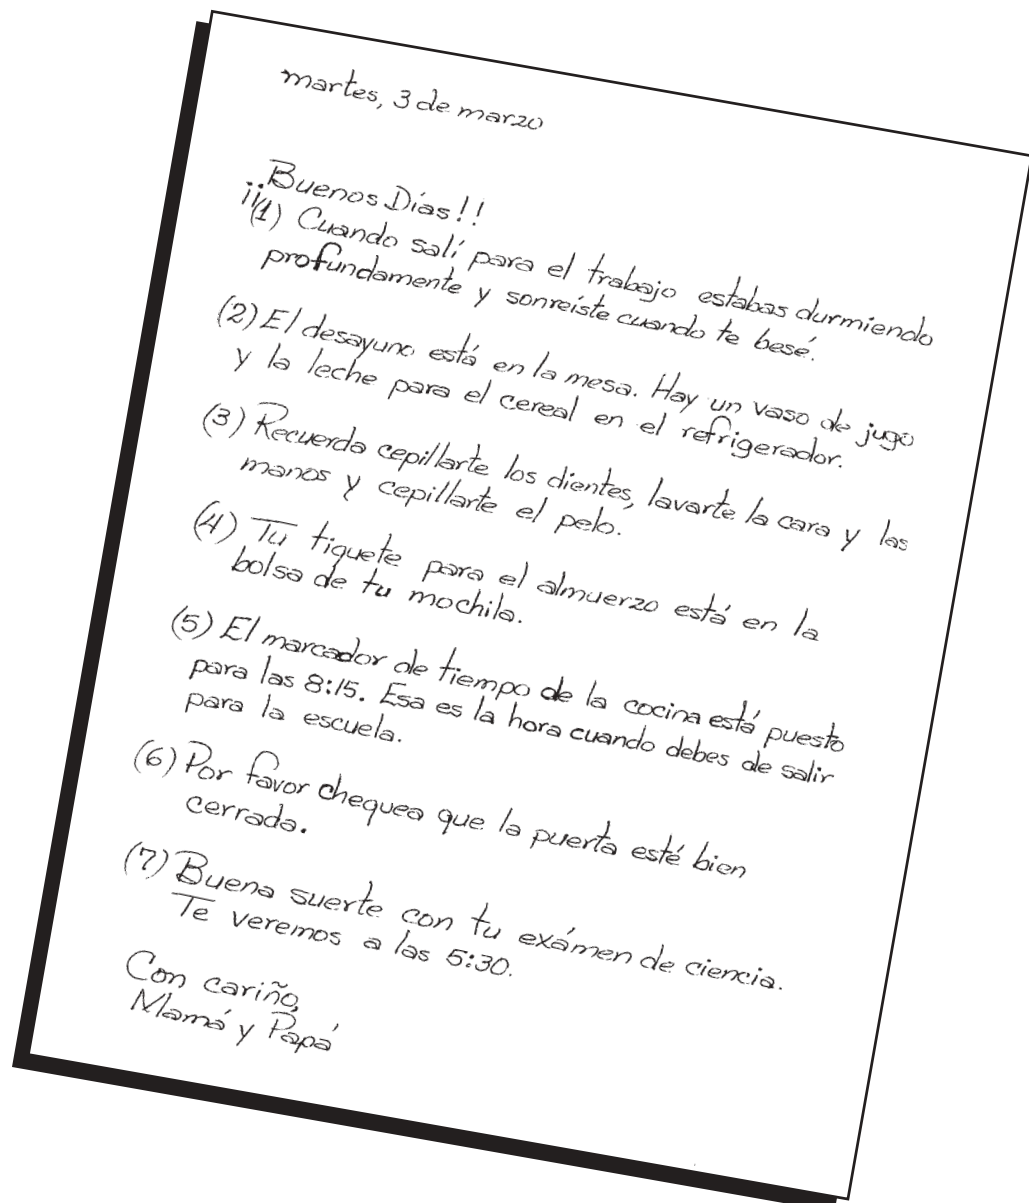 martes, 3 de marzo
¡¡Buenos Días!!
(1) Cuando salí para el trabajo estabas durmiendo
profundamente y sonreíste cuando te besé.
(2) El desayuno está en la mesa. Hay un vaso de jugo
y la leche para el cereal en el refrigerador.
(3) Recuerda cepillarte los dientes, lavarte la cara y las
manos y cepillarte el pelo.
(4) Tu tiquete para el almuerzo está en la
bolsa de tu mochila.
(5) El marcador de tiempo de la cocina está puesto
para las 8:15. Esa es la hora cuando debes de salir
para la escuela.
(6) Por favor chequea que la puerta esté bien
cerrada.
(7) Buena suerte con tu exámen de ciencia.
Te veremos a las 5:30.
Con cariño,
Mamá y Papá